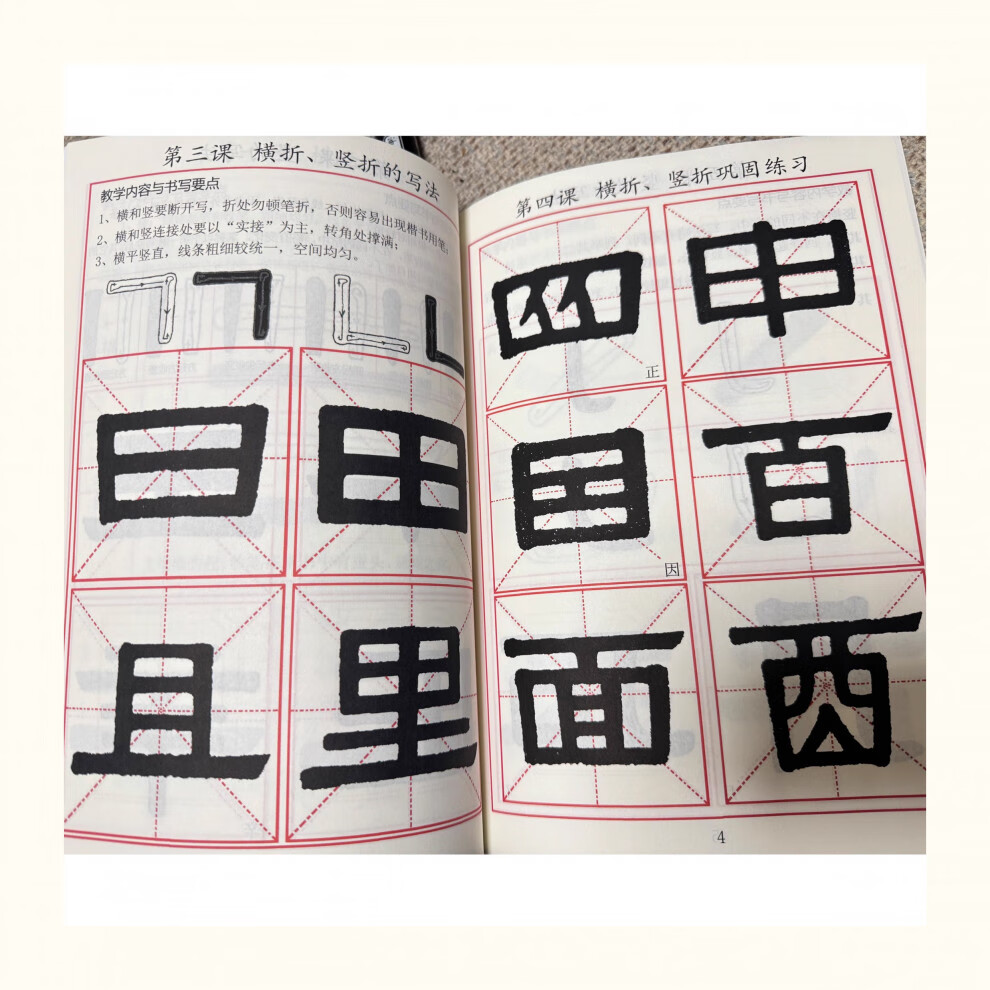 第三课 横折、竖折的写法
教学内容与书写要点
1、横和竖要断开写，折处勿顿笔折，否则容易出现楷书用笔；
2、横和竖连接处要以“实接”为主，转角处撑满；
3、横平竖直，线条粗细较统一，空间均匀。
日 田
且 里
第四课 横折、竖折巩固练习
四 申
正
因 百
因
面 西
4